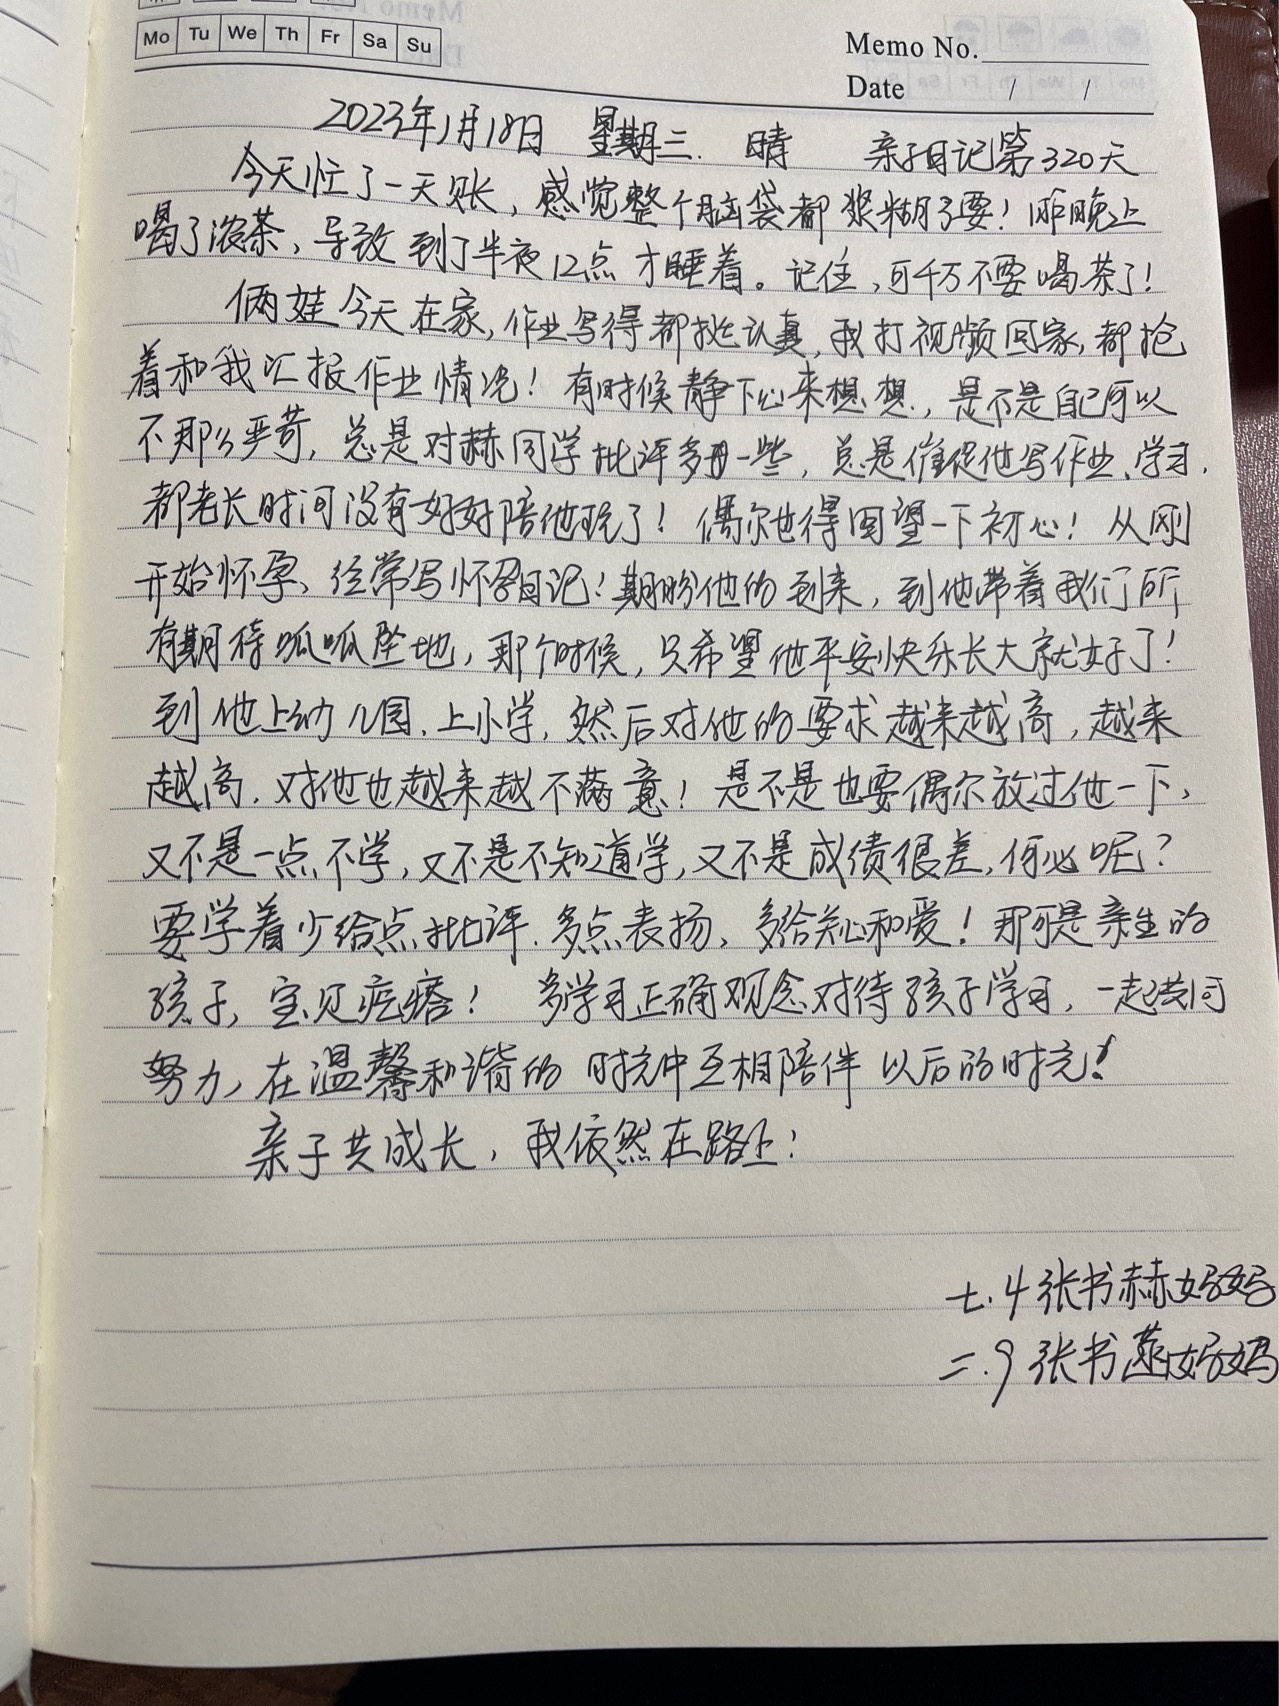 Mo Tu We Th Fr Sa Su
Memo No.
Date / /
2023年1月18日 星期三. 晴 亲子日记第320天
今天忙了一天账，感觉整个脑袋都浆糊了要！昨晚上
喝了浓茶，导致到了半夜12点才睡着。记住，可千万不要喝茶了！
俩娃今天在家，作业写得都挺认真，我打视频回家，都抢
着和我汇报作业情况！有时候静下心来想想，是不是自己可以
不那么严苛，总是对赫同学批评多一些，总是催促他写作业、学习，
都老长时间没有好好陪他玩了！偶尔也得回望一下初心！从刚
开始怀孕、经常写怀孕日记！期盼他的到来，到他带着我们所
有期待呱呱坠地，那个时候，只希望他平安快乐长大就好了！
到他上幼儿园，上小学，然后对他的要求越来越高，越来
越高，对他也越来越不满意！是不是也要偶尔放过他一下，
又不是一点不学，又不是不知道学，又不是成绩很差，何必呢？
要学着少给点批评、多点表扬、多给关心和爱！那可是亲生的
孩子，宝贝疙瘩！多学习正确观念对待孩子学习，一起共同
努力，在温馨和谐的时光中互相陪伴以后的时光！
亲子共成长，我依然在路上！
七.4张书赫妈妈
二.9张书燕妈妈